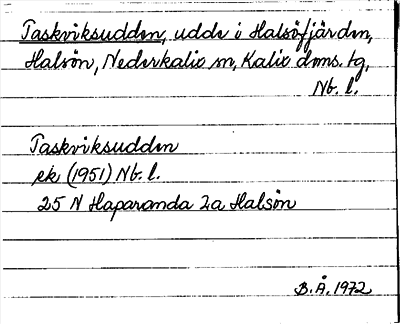 Taskviksudden, udde i Halsöfjärden,
Halsön, Nederkalix sn, Kalix doms. tg,
Nb. l.
Taskviksudden
ek (1951) Nb. l.
25 N Haparanda 2a Halsön
B.Å. 1972